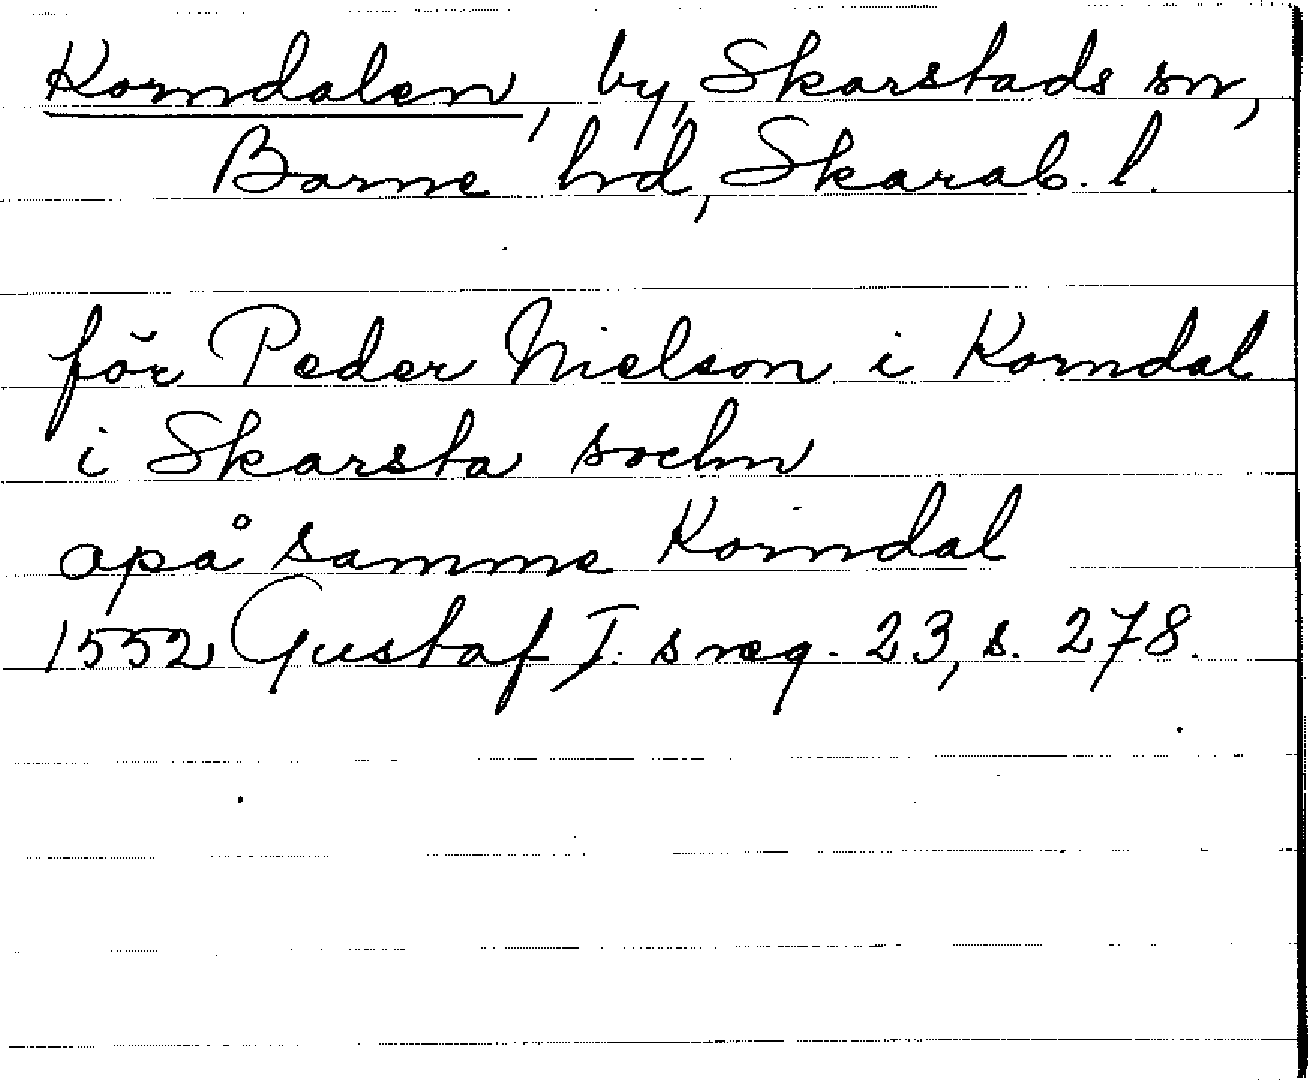 Korndalen, by, Skarstads sn,
Barne hd, Skarab. l.
för Peder Nielson i Korndal
i Skarsta sochn
apå samme Korndal
1552 Gustaf I:s reg. 23, s. 278.